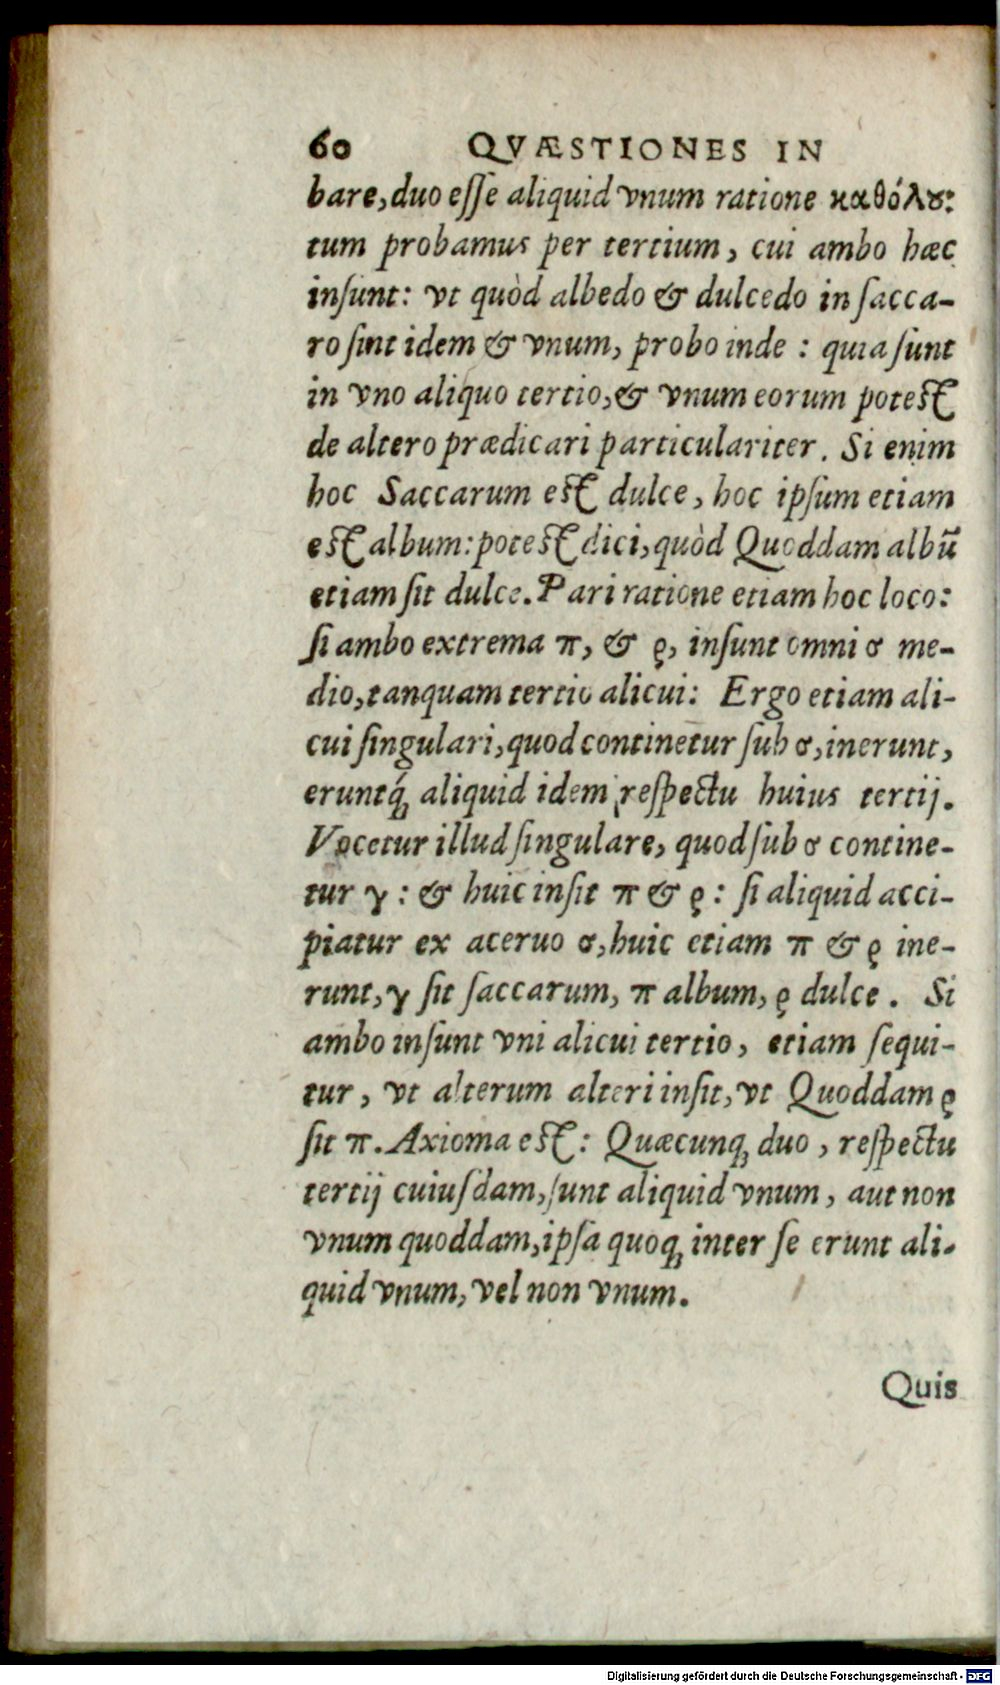 60 QVÆSTIONES IN
bare, duo esse aliquid vnum ratione καθόλου:
tum probamus per tertium, cui ambo hæc
insunt: vt quòd albedo & dulcedo in sacca-
ro sint idem & vnum, probo inde: quia sunt
in vno aliquo tertio, & vnum eorum potest
de altero prædicari particulariter. Si enim
hoc Saccarum est dulce, hoc ipsum etiam
est album: potest dici, quòd Quoddam albũ
etiam sit dulce. Pari ratione etiam hoc loco:
si ambo extrema π, & ρ, insunt omni σ me-
dio, tanquam tertio alicui: Ergo etiam ali-
cui singulari, quod continetur sub σ, inerunt,
eruntq́ꝫ aliquid idem respectu huius tertij.
Vocetur illud singulare, quod sub σ contine-
tur γ: & huic insit π & ρ: si aliquid acci-
piatur ex aceruo σ, huic etiam π & ρ ine-
runt, γ sit saccarum, π album, ρ dulce. Si
ambo insunt vni alicui tertio, etiam sequi-
tur, vt alterum alteri insit, vt Quoddam ρ
sit π. Axioma est: Quæcunqꝫ duo, respectu
tertij cuiusdam, sunt aliquid vnum, aut non
vnum quoddam, ipsa quoqꝫ inter se erunt ali-
quid vnum, vel non vnum.
Quis
Digitalisierung gefördert durch die Deutsche Forschungsgemeinschaft - DFG